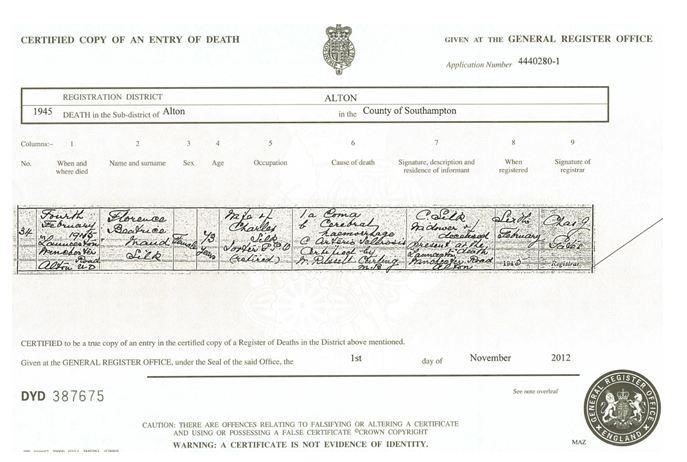 CERTIFIED COPY OF AN ENTRY OF DEATH
GIVEN AT THE GENERAL REGISTER OFFICE
Application Number 4440280-1
REGISTRATION DISTRICT ALTON
1945 DEATH in the Sub-district of Alton in the County of Southampton
Columns:- 1 2 3 4 5 6 7 8 9
No. When and where died Name and surname Sex Age Occupation Cause of death Signature, description and residence of informant When registered Signature of registrar
34
Fourth
February
1945
Launceston
Winchester
Road
Alton U.D
Florence
Beatrice
Maud
Silk
Female
73
Years
Wife of
Charles
Silk
(retired)
1a Coma
b Cerebral
haemorrhage
c
Certified by
M.B
C. Silk
Widower of
deceased
present at the
death
Launceston
Winchester Road
Alton
Sixth
February
1945
Chas J
Registrar
CERTIFIED to be a true copy of an entry in the certified copy of a Register of Deaths in the District above mentioned.
Given at the GENERAL REGISTER OFFICE, under the Seal of the said Office, the 1st day of November 2012
DYD 387675
See note overleaf
CAUTION: THERE ARE OFFENCES RELATING TO FALSIFYING OR ALTERING A CERTIFICATE
AND USING OR POSSESSING A FALSE CERTIFICATE ©CROWN COPYRIGHT
WARNING: A CERTIFICATE IS NOT EVIDENCE OF IDENTITY.
MAZ
GENERAL REGISTER OFFICE
ENGLAND